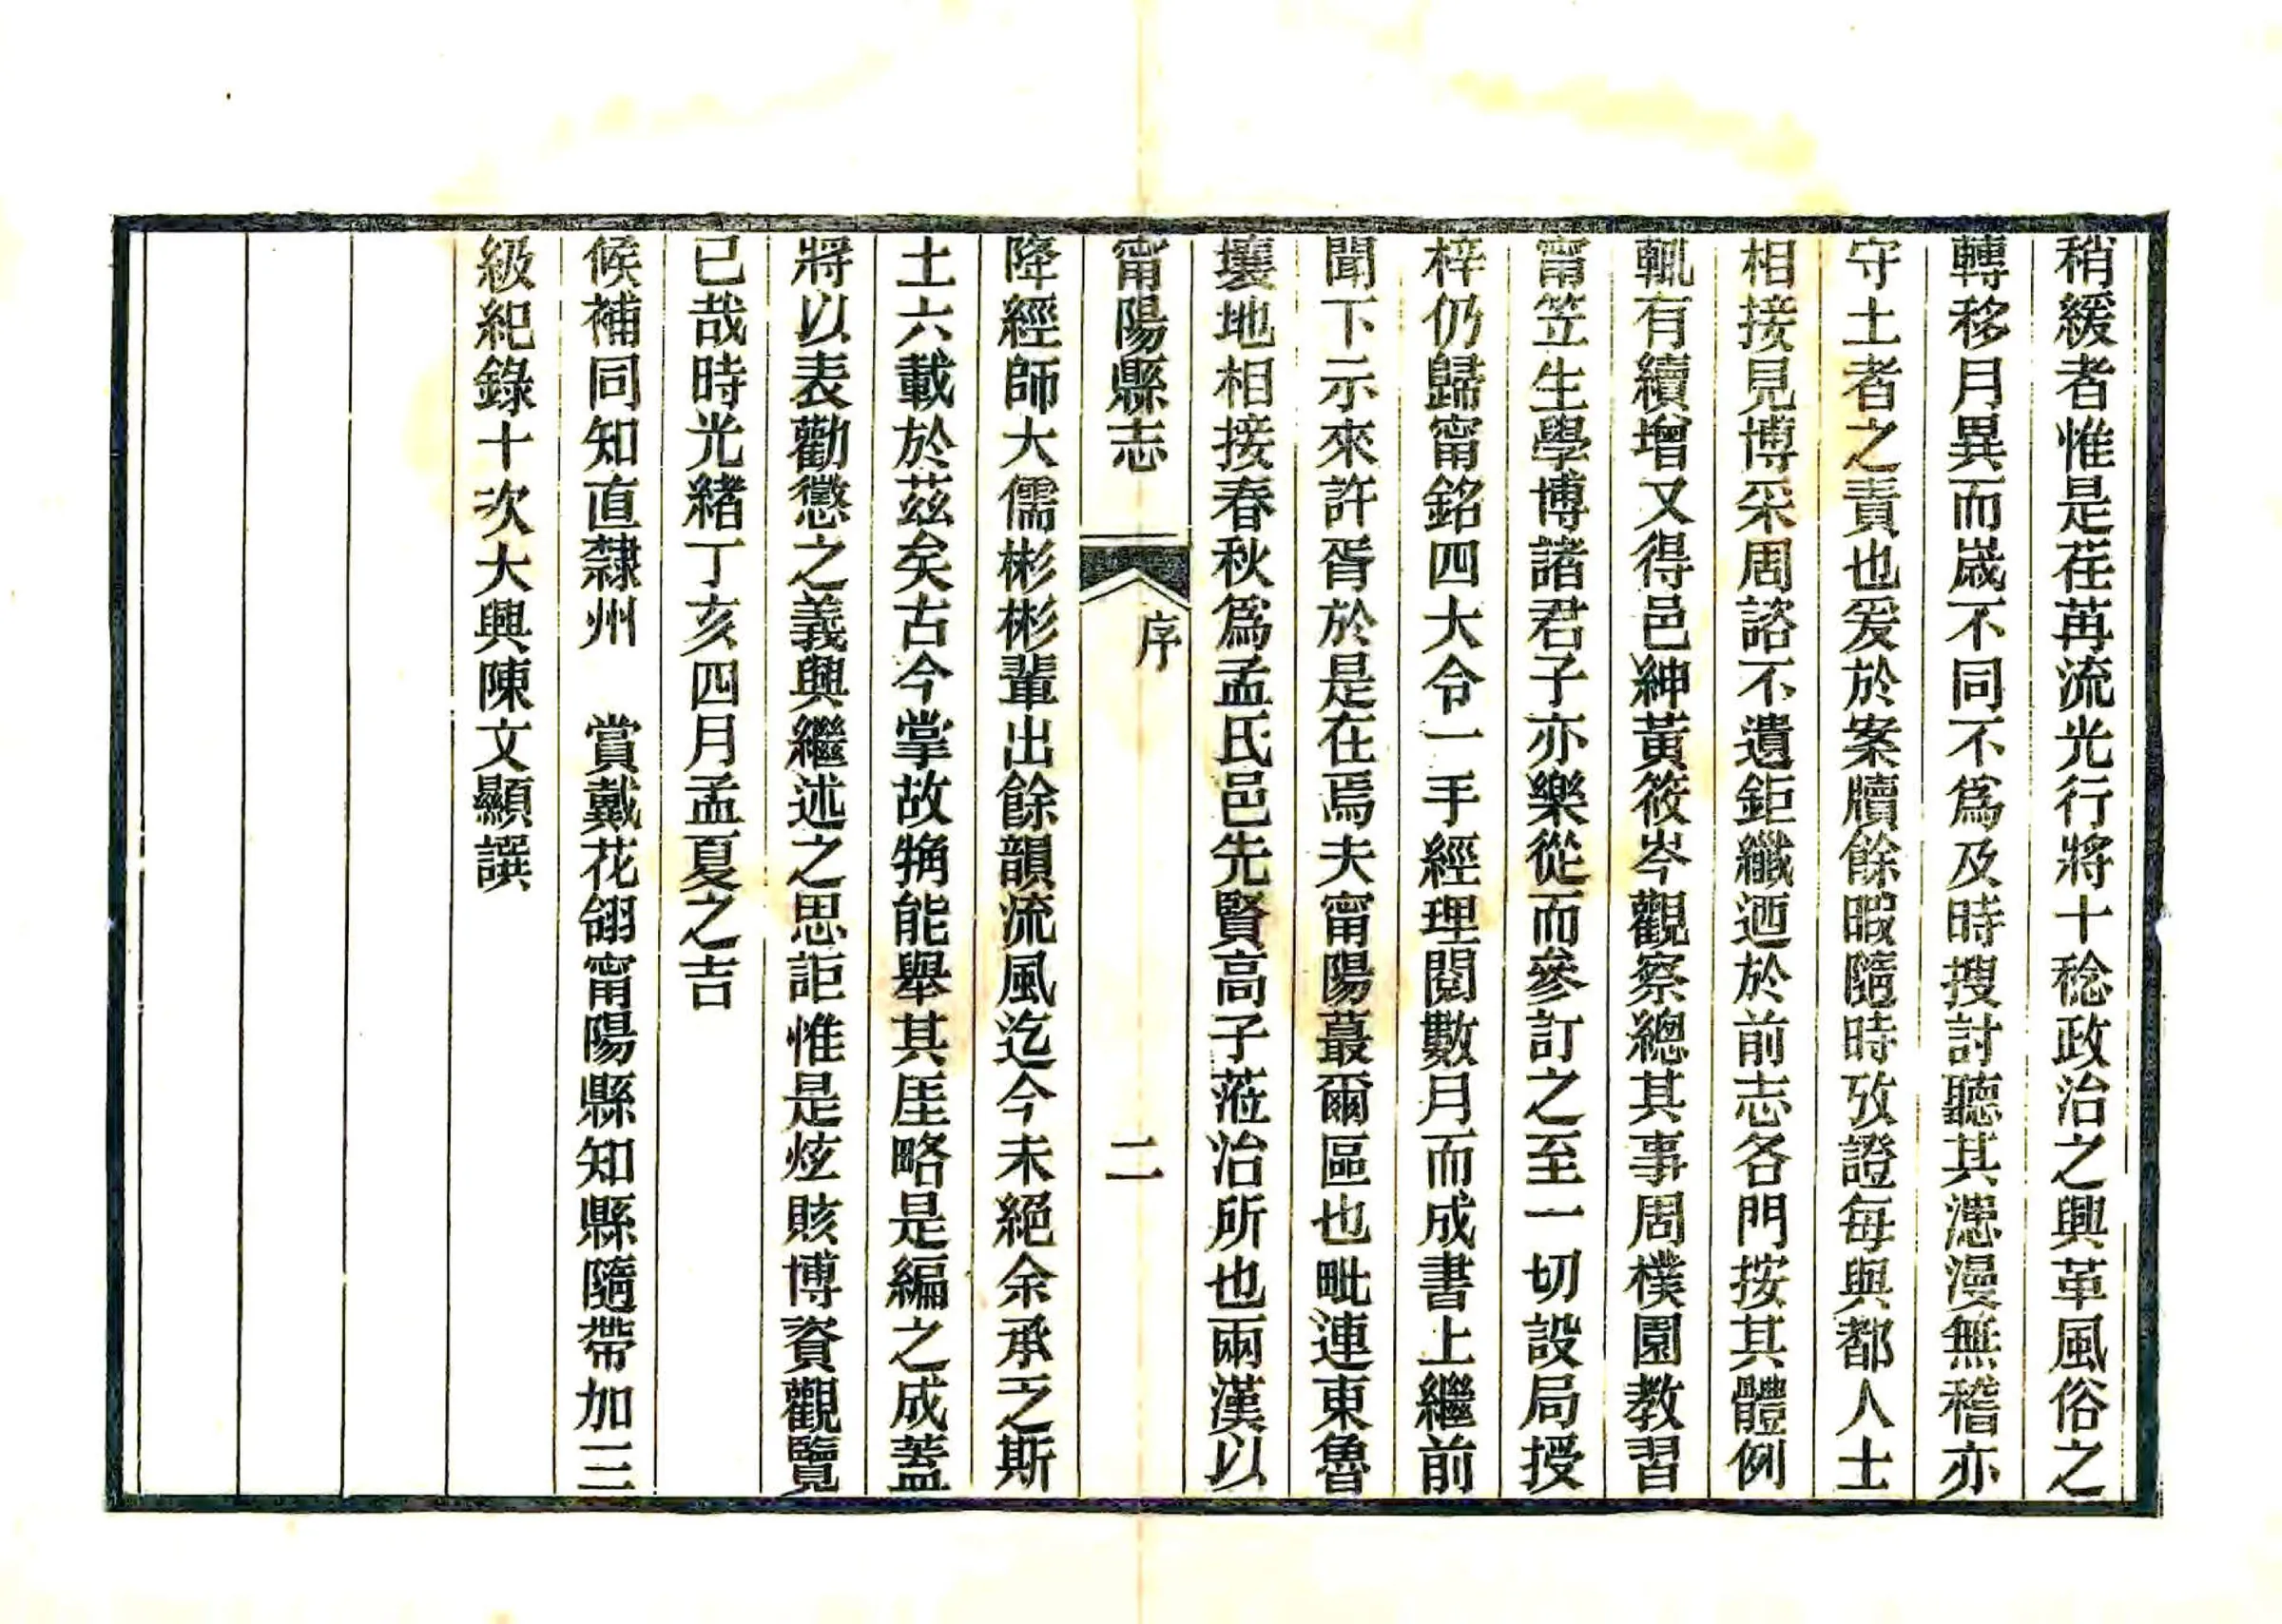 稍緩者惟是荏苒流光行將十稔政治之興革風俗之
轉移月異而嵗不同不爲及時搜討聽其漶漫無稽亦
守土者之責也爰於案牘餘暇隨時攷證每與都人士
相接見博采周諮不遺鉅纖迺於前志各門按其體例
輒有續增又得邑紳黃筱岑觀察總其事周樸園教習
甯笠生學博諸君子亦樂從而參訂之至一切設局授
梓仍歸甯銘四大令一手經理閱數月而成書上繼前
聞下示來許胥於是在焉夫甯陽蕞爾區也毗連東魯
壤地相接春秋爲孟氏邑先賢高子蒞治所也兩漢以
甯陽縣志 序 二
降經師大儒彬彬輩出餘韻流風迄今未絕余承乏斯
土六載於茲矣古今掌故觕能舉其厓略是編之成蓋
將以表勸懲之義興繼述之思詎惟是炫賅博資觀覽
已哉時光緒丁亥四月孟夏之吉
候補同知直隸州 賞戴花翎甯陽縣知縣隨帶加三
級紀錄十次大興陳文顯譔